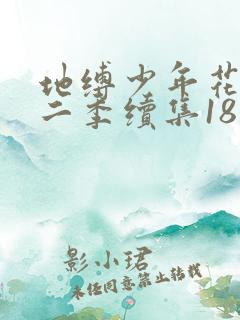 地缚少年花
二季续集18
影小珺
未经同意禁止转载